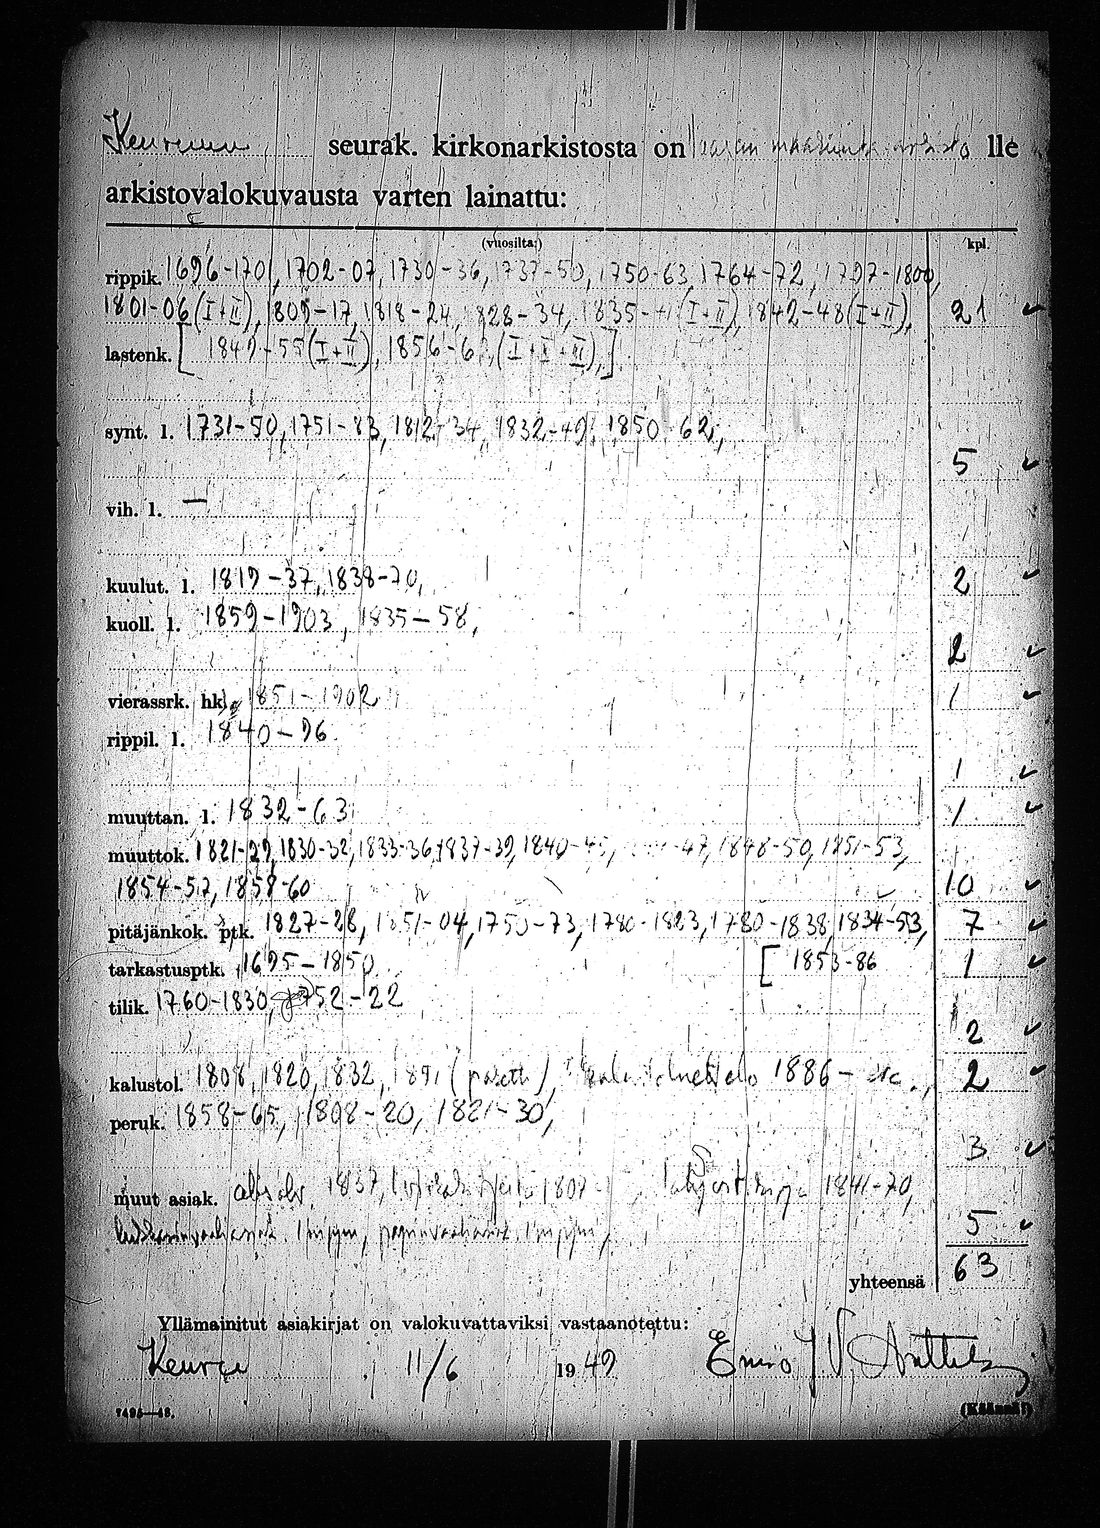 Keuruun seurak. kirkonarkistosta on Vaasan maakunta-arkisto lle
arkistovalokuvausta varten lainattu:
(vuosilta:) kpl.
rippik. 1696-1701, 1702-07, 1730-36, 1737-50, 1750-63, 1764-72, 1797-1800,
1801-06 (I+II), 1809-17, 1818-24, 1828-34, 1835-41 (I+II), 1842-48 (I+II), 21
lastenk. [1849-55 (I+II), 1856-62, (I+II+III),]
synt. l. 1731-50, 1751-83, 1812-34, 1832-49, 1850-62,
5
vih. l. —
kuulut. l. 1819-37, 1838-70, 2
kuoll. l. 1859-1903, 1835-58,
2
vierassrk. hk. 1851-1902 1
rippil. l. 1840-96
1
muuttan. l. 1832-63 1
muuttok. 1821-29, 1830-32, 1833-36, 1837-39, 1840-45, -47, 1848-50, 1851-53,
1854-57, 1858-60 10
pitäjänkok. ptk. 1827-28, 1851-04, 1750-73, 1780-1823, 1780-1838, 1834-53, 7
tarkastusptk. 1695-1850 [1853-86 1
tilik. 1760-1830, 1752-22
2
kalustol. 1808, 1820, 1832, 1891 1886- 2
peruk. 1858-65, 1808-20, 1821-30,
3
muut asiak. 1837, 1841-70,
5
yhteensä 63
Yllämainitut asiakirjat on valokuvattaviksi vastaanotettu:
11/6 1949 Eino V. Anttila
7495—48. (Käännä!)